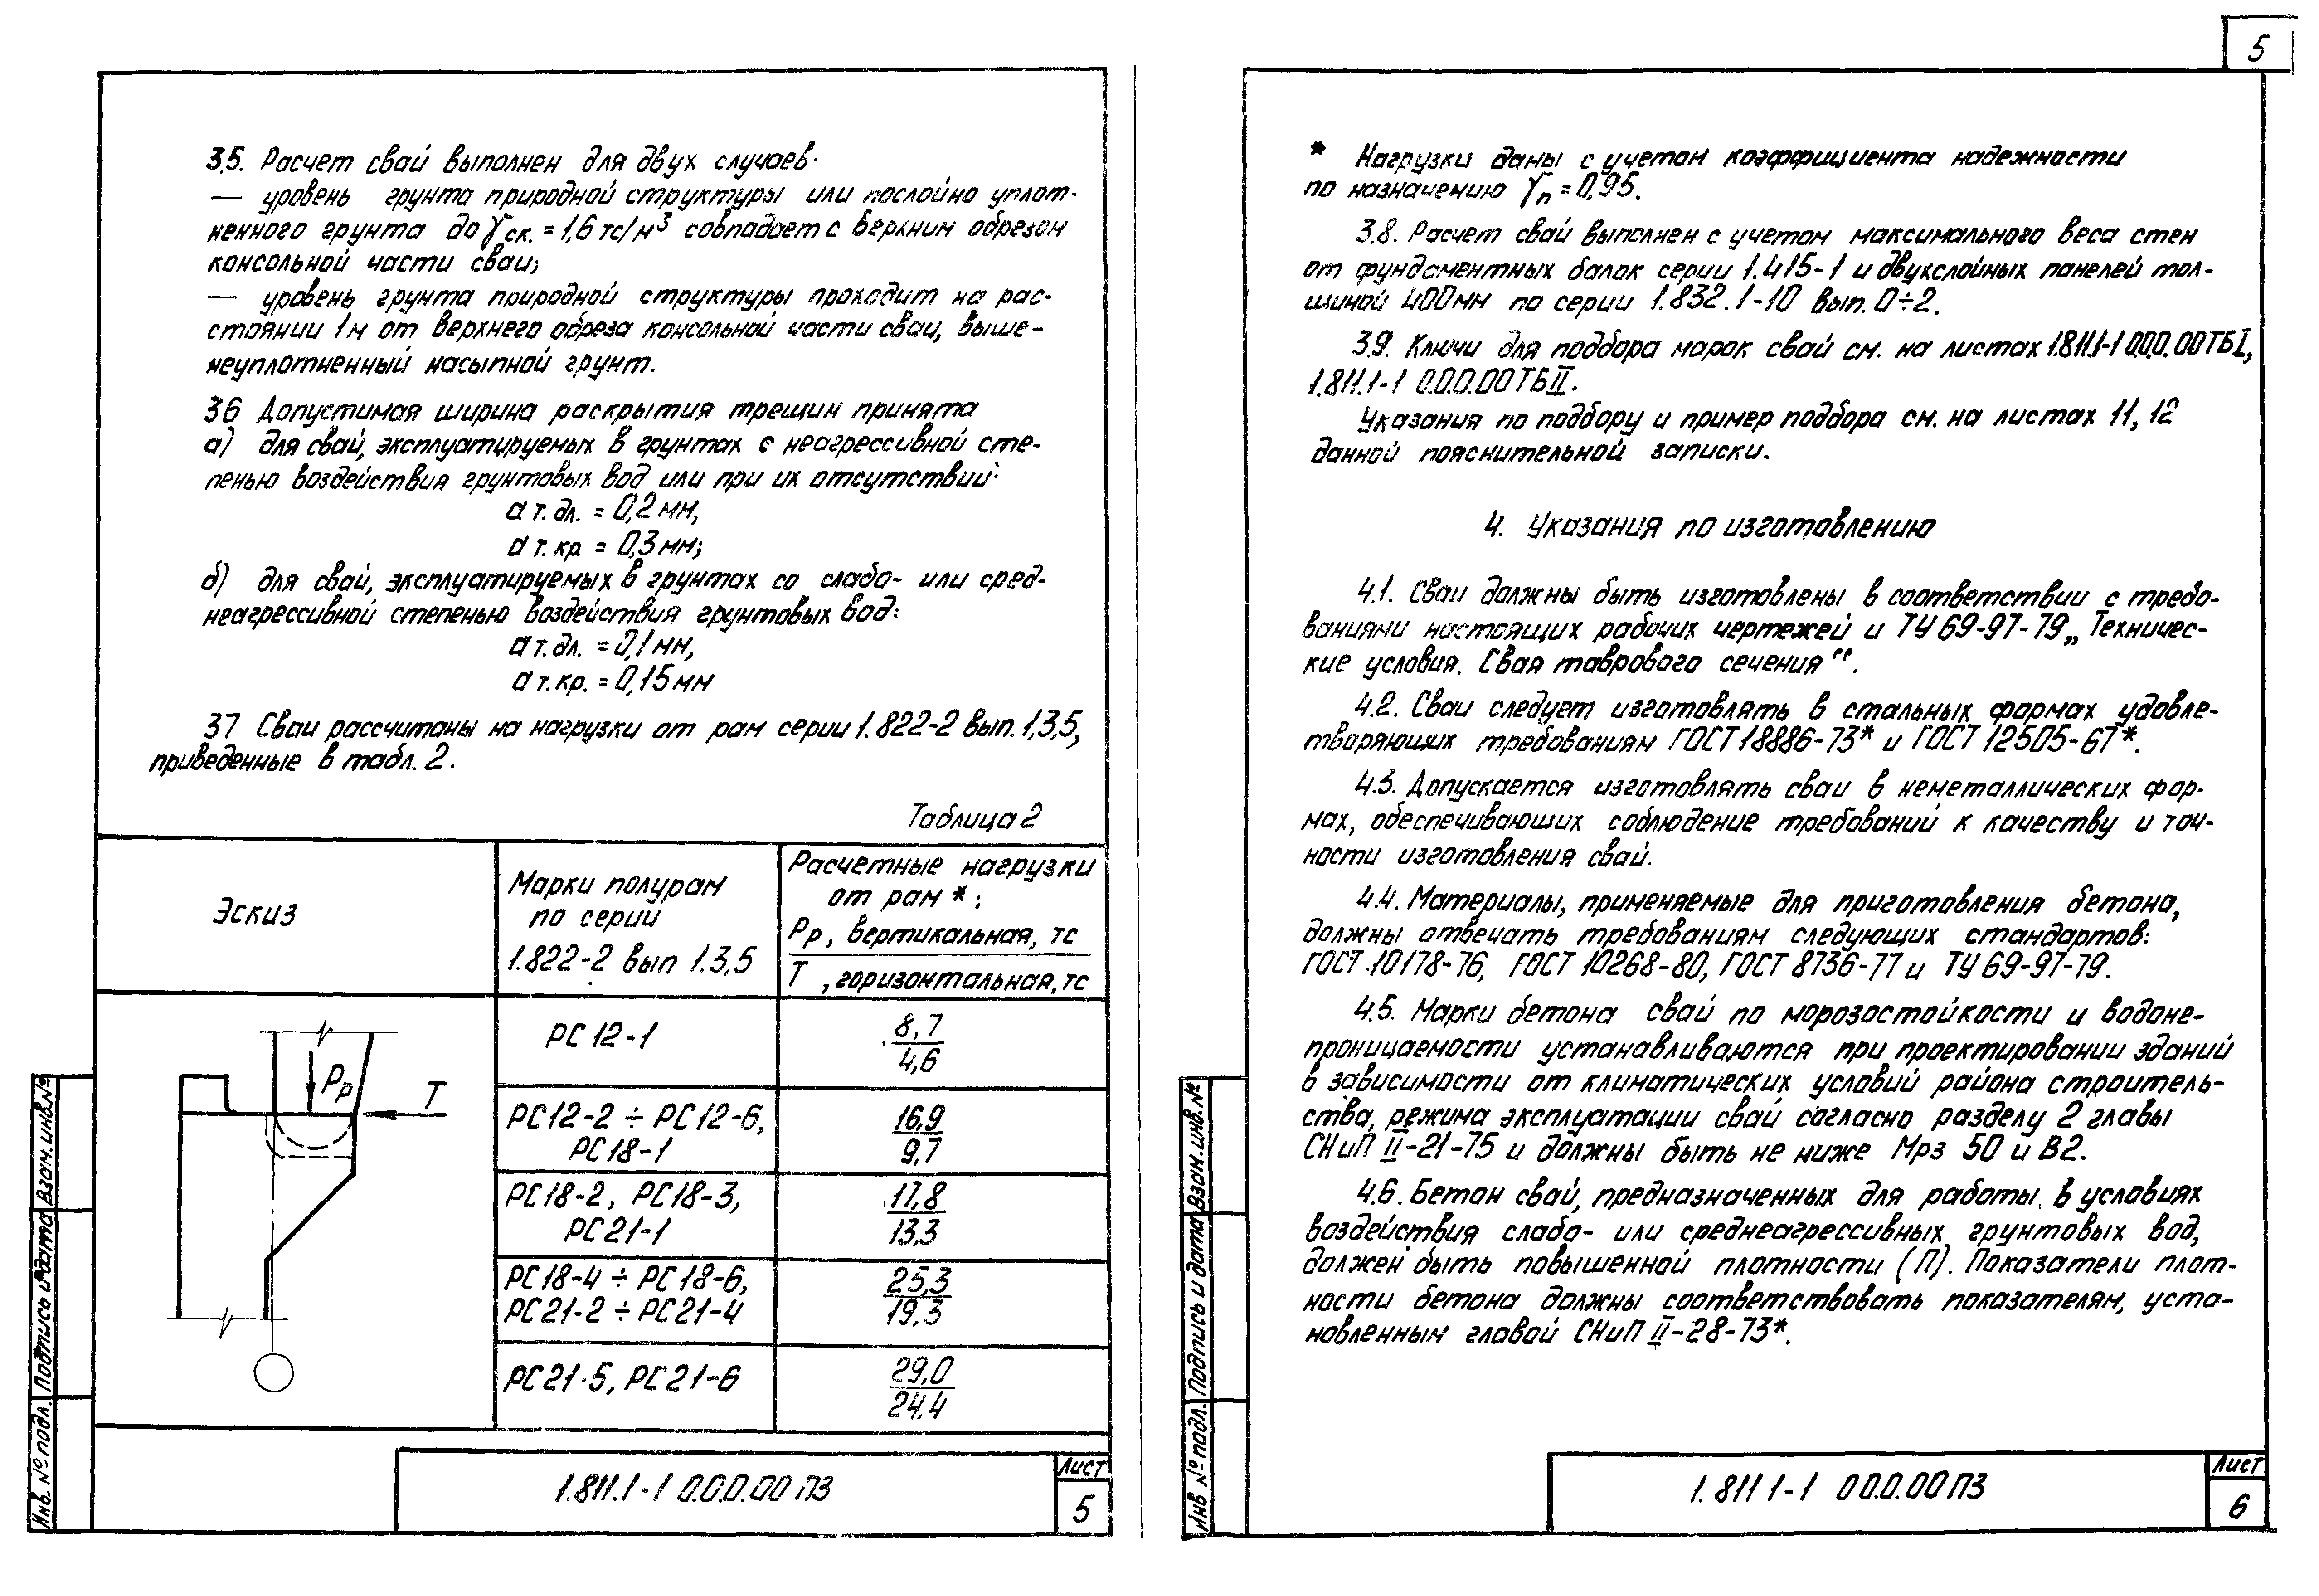 5
3.5. Расчет свай выполнен для двух случаев.
— уровень грунта природной структуры или послойно уплот-
ненного грунта до γск. = 1,6 тс/м³ совпадает с верхним обрезом
консольной части сваи;
— уровень грунта природной структуры проходит на рас-
стоянии 1м от верхнего обреза консольной части сваи, выше-
неуплотненный насыпной грунт.
3.6 Допустимая ширина раскрытия трещин принята
а) для свай, эксплуатируемых в грунтах с неагрессивной сте-
пенью воздействия грунтовых вод или при их отсутствий·
aт.дл. = 0,2 мм,
aт.кр = 0,3 мм;
б) для свай, эксплуатируемых в грунтах со слабо- или сред-
неагрессивной степенью воздействия грунтовых вод:
aт.дл. = 0,1 мм,
aт.кр. = 0,15 мм
3.7 Сваи рассчитаны на нагрузки от рам серии 1.822-2 вып. 1,3,5,
приведенные в табл. 2.
Таблица 2
Эскиз
Марки полурам
по серии
1.822-2 вып 1.3,5
Расчетные нагрузки
от рам *;
Pр, вертикальная, тс
T, горизонтальная, тс
Pр
T
РС12-1
8,7
4,6
РС12-2 ÷ РС12-6,
РС18-1
16,9
9,7
РС18-2, РС18-3,
РС21-1
17,8
13,3
РС18-4 ÷ РС18-6,
РС21-2 ÷ РС21-4
25,3
19,3
РС21-5, РС21-6
29,0
24,4
1.811.1-1 0.0.0.00 ПЗ
Лист
5
Инв. № подл.
Подпись и дата
Взам. инв. №
* Нагрузки даны с учетом коэффициента надежности
по назначению γп = 0,95.
3.8. Расчет свай выполнен с учетом максимального веса стен
от фундаментных балок серии 1.415-1 и двухслойных панелей тол-
щиной 400мм по серии 1.832.1-10 вып. 0÷2.
3.9. Ключи для подбора марок свай см. на листах 1.811.1-1 0.0.0.00ТБI,
1.811.1-1 0.0.0.00ТБII.
Указания по подбору и пример подбора см. на листах 11, 12
данной пояснительной записки.
4. Указания по изготовлению
4.1. Сваи должны быть изготовлены в соответствии с требо-
ваниями настоящих рабочих чертежей и ТУ 69-97-79 „Техничес-
кие условия. Свая таврового сечения".
4.2. Сваи следует изготовлять в стальных формах удовле-
творяющих требованиям ГОСТ 18886-73* и ГОСТ 12505-67*.
4.3. Допускается изготовлять сваи в неметаллических фор-
мах, обеспечивающих соблюдение требований к качеству и точ-
ности изготовления свай.
4.4. Материалы, применяемые для приготовления бетона,
должны отвечать требованиям следующих стандартов:
ГОСТ 10178-76, ГОСТ 10268-80, ГОСТ 8736-77 и ТУ 69-97-79.
4.5. Марки бетона свай по морозостойкости и водоне-
проницаемости устанавливаются при проектировании зданий
в зависимости от климатических условий района строитель-
ства, режима эксплуатации свай согласно разделу 2 главы
СНиП II-21-75 и должны быть не ниже Мрз 50 и В2.
4.6. Бетон свай, предназначенных для работы в условиях
воздействия слабо- или среднеагрессивных грунтовых вод,
должен быть повышенной плотности (П). Показатели плот-
ности бетона должны соответствовать показателям, уста-
новленным главой СНиП II-28-73*.
1.811 1-1 0 0.0.00 ПЗ
Лист
6
Инв № подл.
Подпись и дата
Взам. инв. №